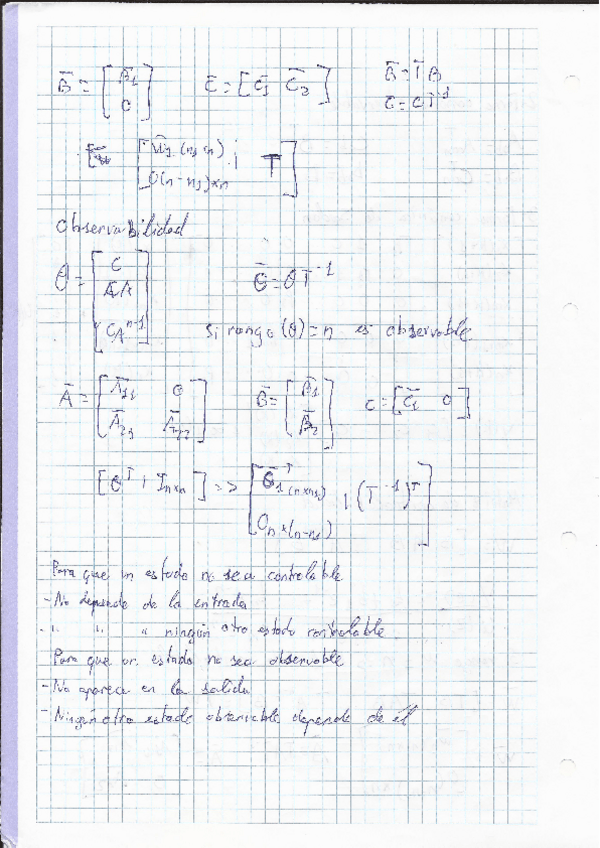 B̄ = [ B̄1 ; 0 ]   C̄ = [ C̄1 C̄2 ]   B̄ = T B
C̄ = C T^-1
[ (n1×n) ; 0(n-n1)×n ¦ T ]
Observabilidad
θ = [ C ; CA ; CA^n-1 ]   θ̄ = θ T^-1
Si rango (θ) = n es observable
Ā = [ Ā11 0 ; Ā21 Ā22 ]   B̄ = [ B̄1 ; B̄2 ]   C = [ C̄1 0 ]
[ θ^T ¦ I n×n ] => [ θ̄1^T (n×n1) ; 0 n×(n-n1) ¦ (T^-1)^T ]
Para que un estado no sea controlable
- No depende de la entrada
" " " ningún otro estado controlable
Para que un estado no sea observable
- No aparece en la salida
- Ningún otro estado observable depende de él